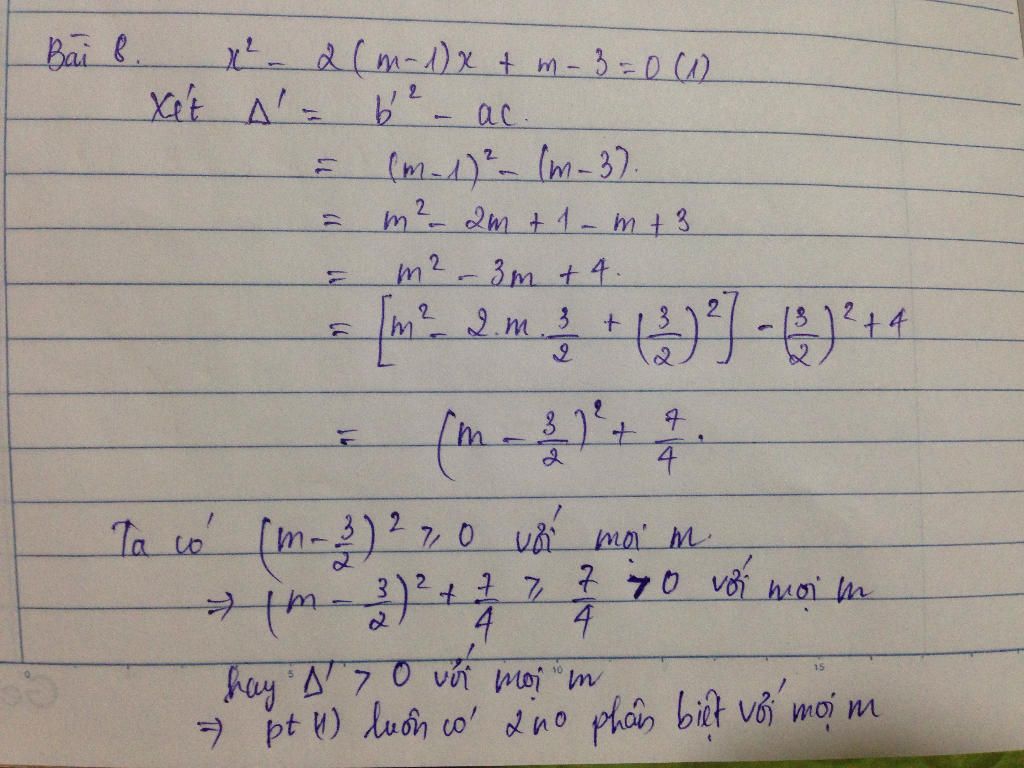 Bài 8. x² - 2(m-1)x + m - 3 = 0 (1)
Xét Δ' = b'² - ac.
= (m-1)² - (m-3).
= m² - 2m + 1 - m + 3
= m² - 3m + 4.
= [m² - 2.m.3/2 + (3/2)²] - (3/2)² + 4
= (m - 3/2)² + 7/4.
Ta có (m - 3/2)² ≥ 0 với mọi m.
⇒ (m - 3/2)² + 7/4 ≥ 7/4 > 0 với mọi m
hay Δ' > 0 với mọi m
⇒ pt (1) luôn có 2 no phân biệt với mọi m
0 5 10 15